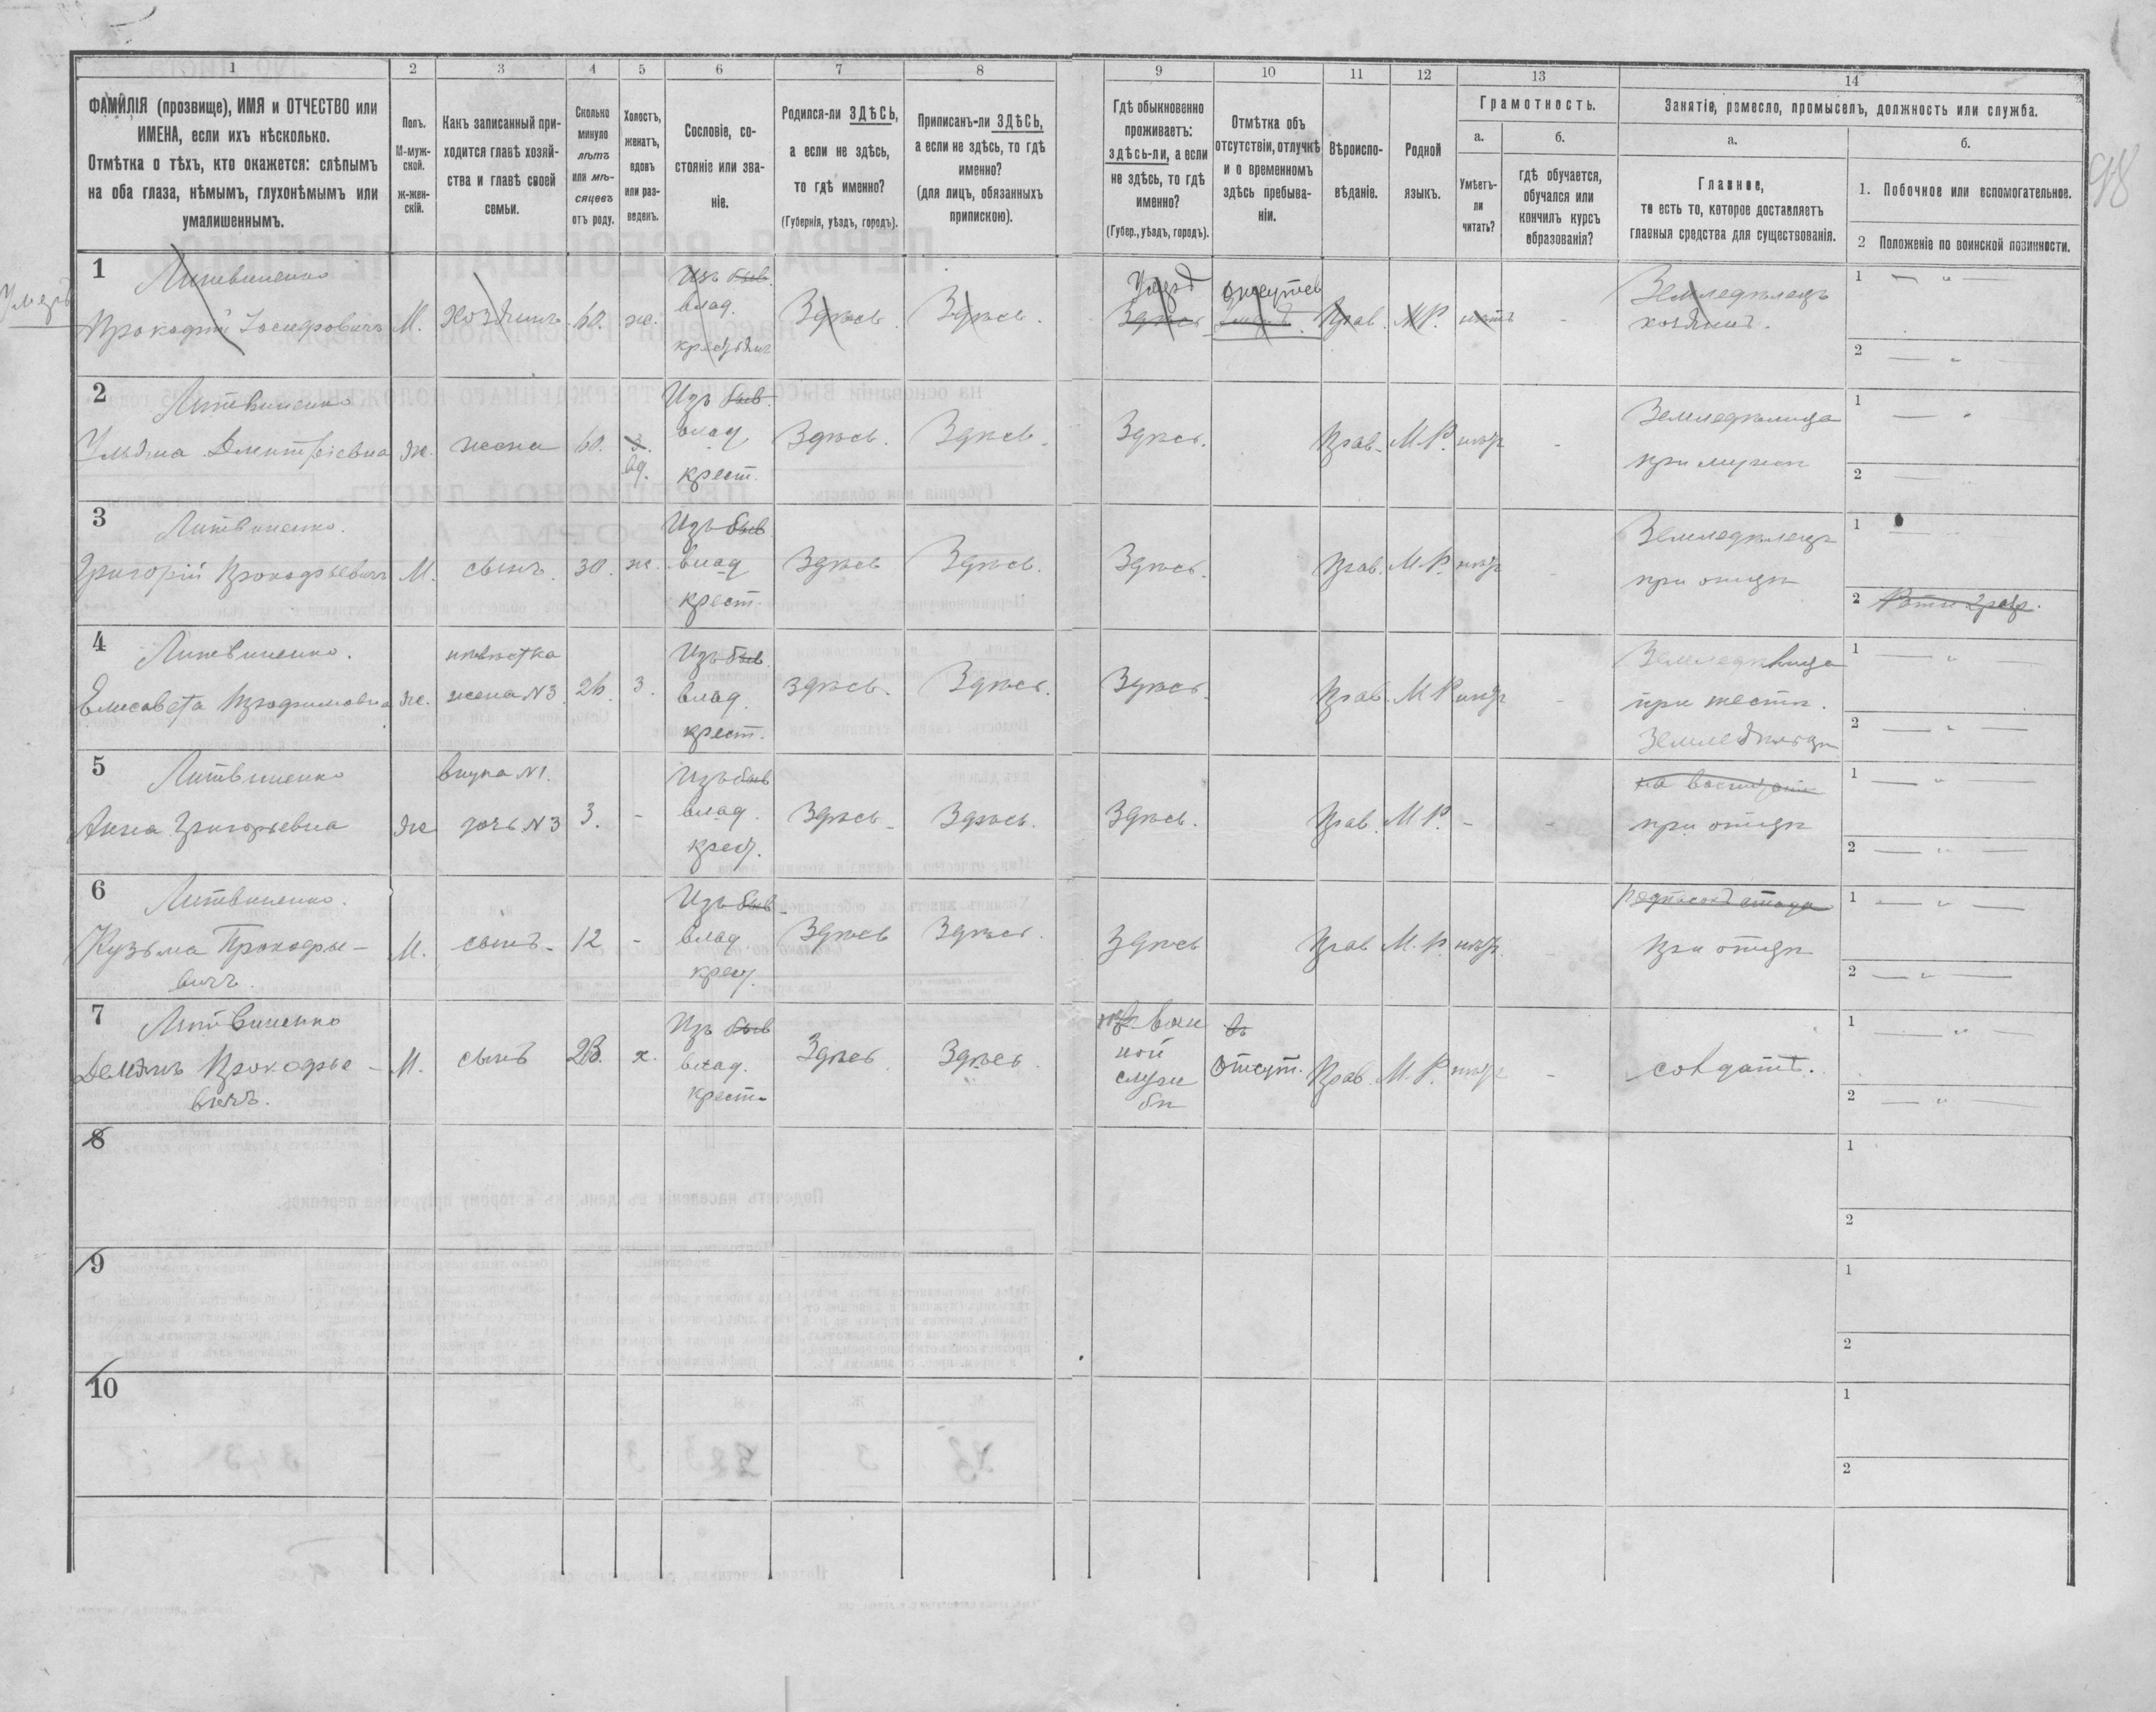 1 2 3 4 5 6 7 8 9 10 11 12 13 14
ФАМИЛІЯ (прозвище), ИМЯ и ОТЧЕСТВО или
ИМЕНА, если ихъ нѣсколько.
Отмѣтка о тѣхъ, кто окажется: слѣпымъ
на оба глаза, нѣмымъ, глухонѣмымъ или
умалишеннымъ.
Полъ.
М-муж-
ской.
ж-жен-
скій.
Какъ записанный при-
ходится главѣ хозяй-
ства и главѣ своей
семьи.
Сколько
минуло
лѣтъ
или мѣ-
сяцевъ
отъ роду.
Холостъ,
женатъ,
вдовъ
или раз-
веденъ.
Сословіе, со-
стояніе или зва-
ніе.
Родился-ли ЗДѢСЬ,
а если не здѣсь,
то гдѣ именно?
(Губернія, уѣздъ, городъ).
Приписанъ-ли ЗДѢСЬ,
а если не здѣсь, то гдѣ
именно?
(для лицъ, обязанныхъ
припискою).
Гдѣ обыкновенно
проживаетъ:
здѣсь-ли, а если
не здѣсь, то гдѣ
именно?
(Губер., уѣздъ, городъ).
Отмѣтка объ
отсутствіи, отлучкѣ
и о временномъ
здѣсь пребыва-
ніи.
Вѣроиспо-
вѣданіе.
Родной
языкъ.
Грамотность.
а.
Умѣетъ-
ли
читать?
б.
гдѣ обучается,
обучался или
кончилъ курсъ
образованія?
Занятіе, ремесло, промыселъ, должность или служба.
а.
Главное,
то есть то, которое доставляетъ
главныя средства для существованія.
б.
1. Побочное или вспомогательное.
2 Положеніе по воинской повинности.
98
Умеръ
1 Литвиненко
Прокофій Іосифовичъ М. Хозяинъ 60. ж.
Изъ быв.
влад.
крестьянъ
Здѣсь Здѣсь.
Здѣсь
отсутст
Прав. М.Р. нѣтъ -
Земледѣлецъ
хозяинъ.
1 — " —
2 — " —
2 Литвиненко
Ульяна Дмитріевна Ж. жена 60.
вд.
Изъ быв.
влад
крест.
Здѣсь. Здѣсь. Здѣсь. Прав. М.Р. нѣт -
Земледѣлица
при мужѣ
1 — " —
2 — " —
3 Литвиненко.
Григорій Прокофьевичъ М. сынъ. 30. ж.
Изъ быв
влад
крест.
Здѣсь Здѣсь. Здѣсь. Прав. М.Р. нѣт -
Земледѣлецъ
при отцѣ
1
2
4 Литвиненко.
Елисавета Трофимовна Ж.
невѣстка
жена N3 26. З.
Изъ быв.
влад.
крест.
Здѣсь. Здѣсь. Здѣсь. Прав. М.Р. нѣт -
Земледѣлица
при тестѣ.
Земледѣлецъ
1 — " —
2 — " —
5 Литвиненко
Анна Григорьевна Ж
внука N1.
дочь N3 3. -
Изъ быв
влад.
крест.
Здѣсь Здѣсь. Здѣсь. Прав. М.Р. - -
при отцѣ
1 — " —
2 — " —
6 Литвиненко.
Кузьма Прокофье-
вичъ.
М. сынъ. 12 -
Изъ быв
влад.
крест.
Здѣсь Здѣсь. Здѣсь Прав М.Р. нѣт. -
при отцѣ
1 — " —
2 — " —
7 Литвиненко
Демянъ Прокофье-
вичъ.
М. сынъ 23. х.
Изъ быв
влад.
крест.
Здѣсь Здѣсь
воен
ной
служ
бѣ
въ
Отсут. Прав. М.Р. нѣт -
солдатъ.
1 — " —
2 — " —
8
1
2
9
1
2
10
1
2